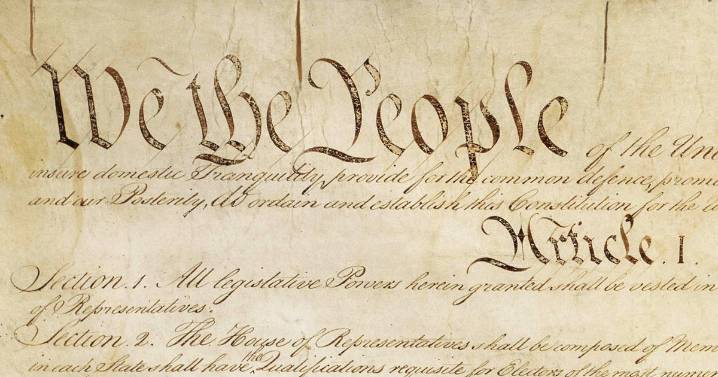 We the People of the Uni
insure domestic Tranquility, provide for the common defence, promo
and our Posterity, do ordain and establish this Constitution for the U
Article. I.
Section. 1. All legislative Powers herein granted shall be vested in
of Representatives.
Section. 2. The House of Representatives shall be composed of Mem
the
in each State shall have Qualifications requisite for Electors of the most numer